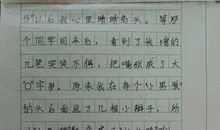 以后我心里暗暗高兴。等那
个同学回来后,看到了我增的
几笔哭笑不得,把嘴张成了大
"O"字形。原来我在每个小男孩
的头上面画了几根小辫子,所